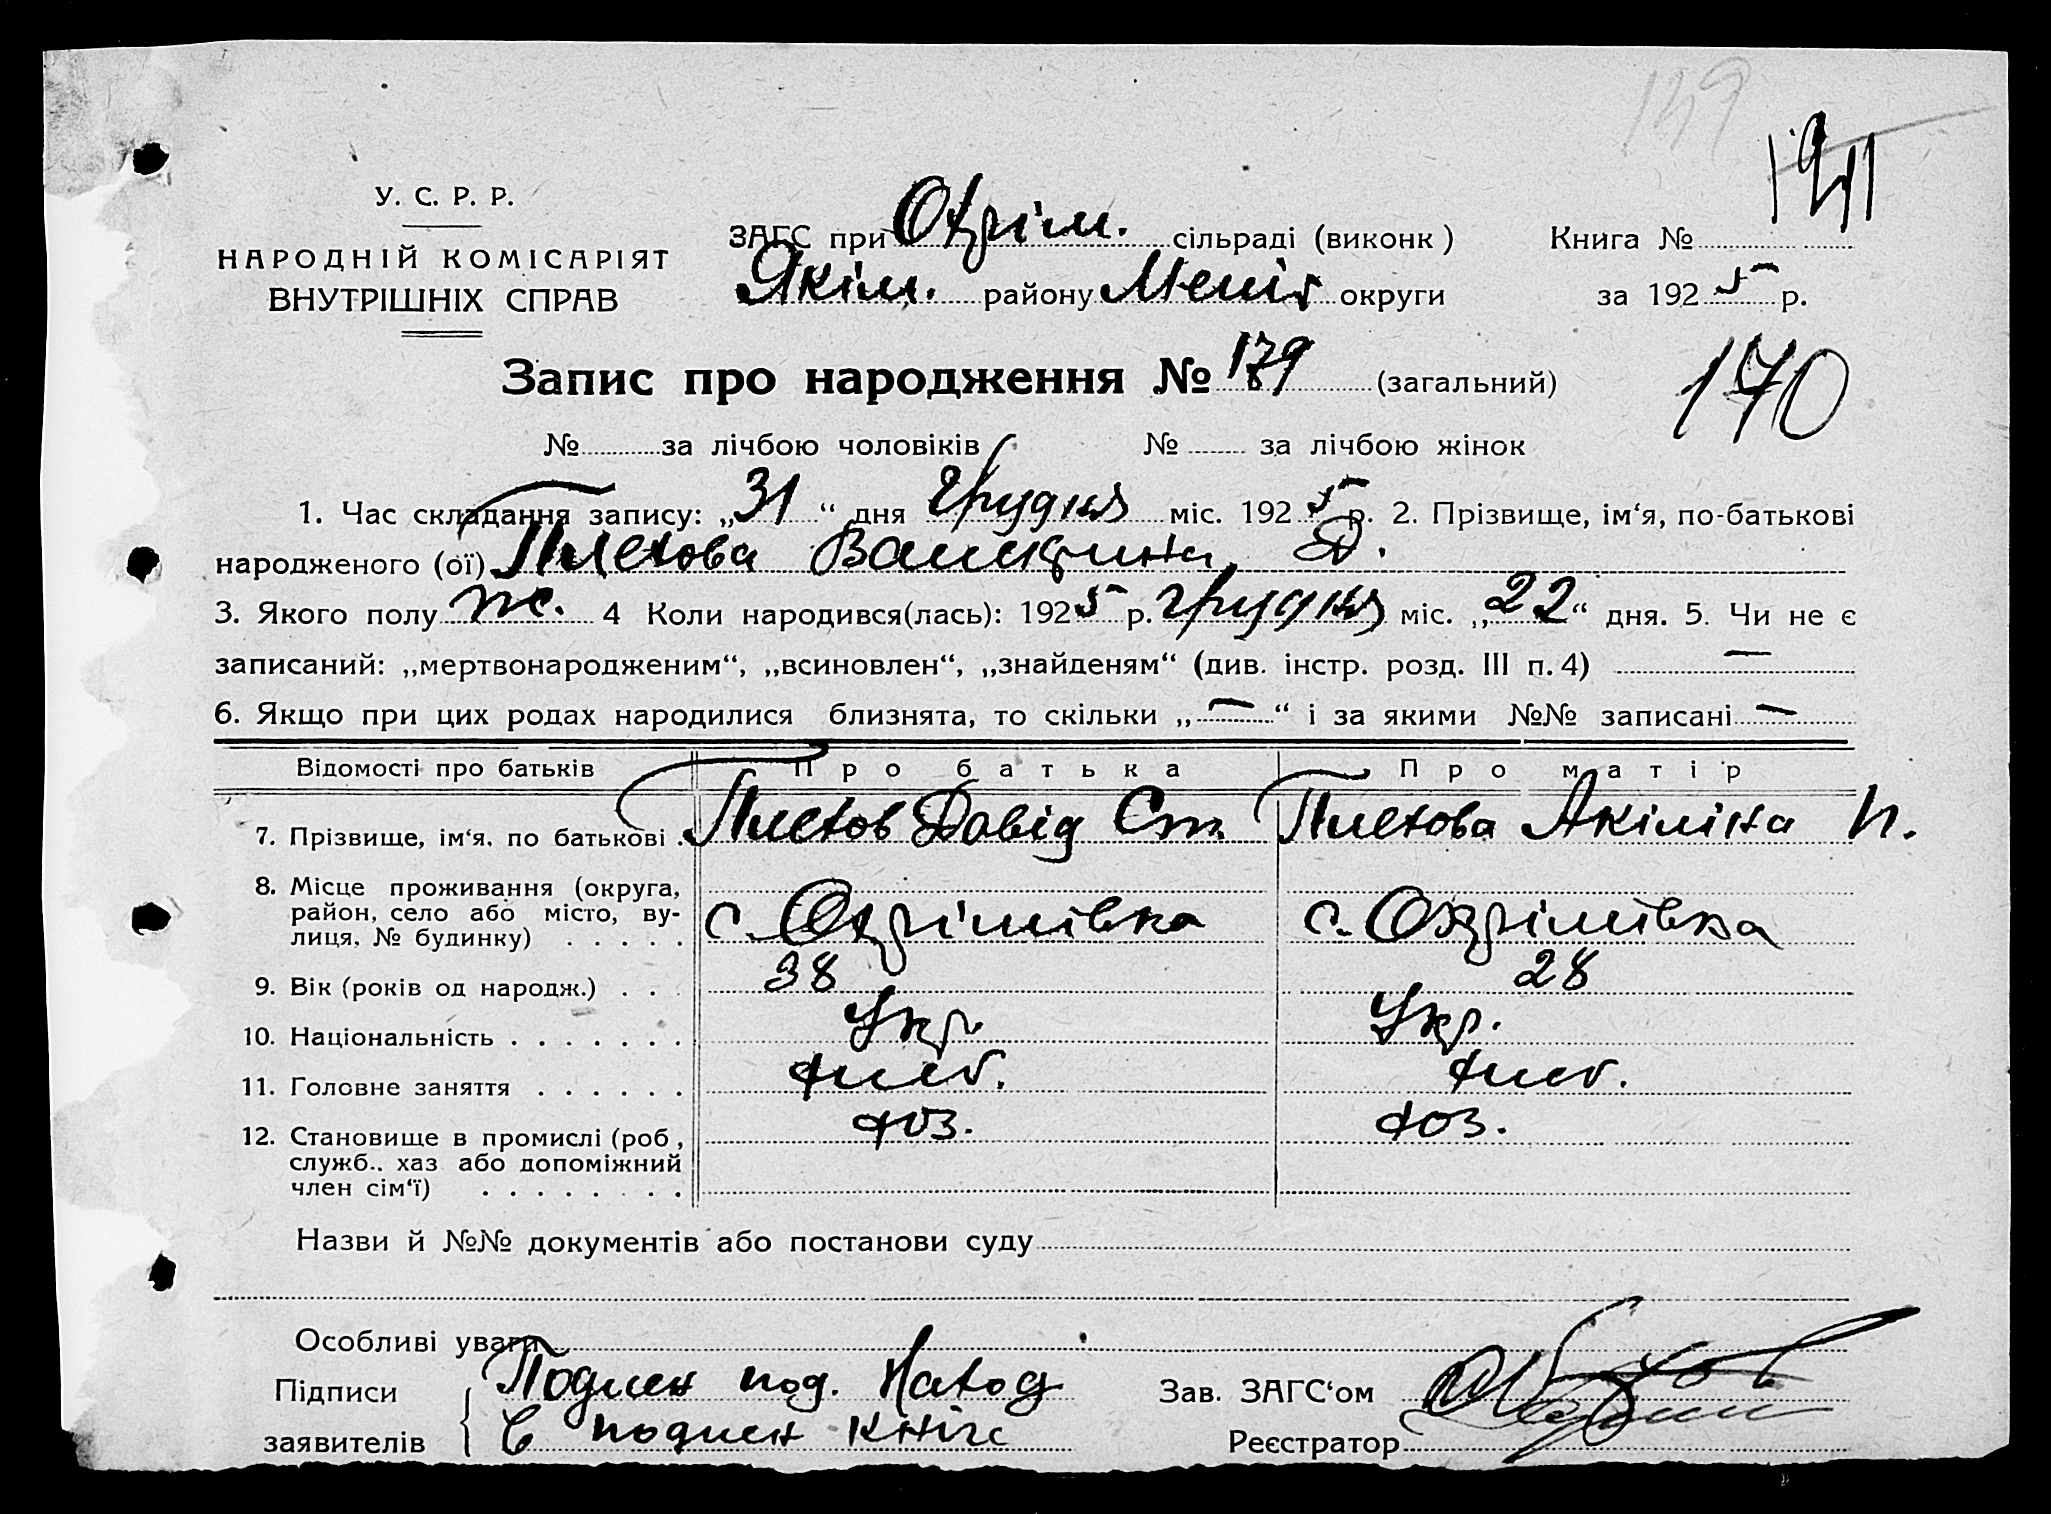 149
191
У. С. Р. Р.
НАРОДНІЙ КОМІСАРІЯТ
ВНУТРІШНІХ СПРАВ
ЗАГС при Охрім. сільраді (виконк) Книга №
Якім. району Меліт округи за 1925 р.
Запис про народження № 179 (загальний)
170
№ за лічбою чоловіків № за лічбою жінок
1. Час складання запису: „31“ дня грудня міс. 1925 р. 2. Прізвище, ім‘я, по-батькові
народженого (ої) Плехова Д.
3. Якого полу ж. 4 Коли народився(лась): 1925 р. грудня міс. „22“ дня. 5. Чи не є
записаний: „мертвонародженим“, „всиновлен“, „знайденям“ (див. інстр. розд. III п. 4) —
6. Якщо при цих родах народилися близнята, то скільки „—“ і за якими №№ записані —
Відомості про батьків Про батька Про матір
7. Прізвище, ім‘я, по батькові . Плехов Довід Ст. Плехова Акіліна П.
8. Місце проживання (округа,
район, село або місто, ву-
лиця, № будинку) . . . . . с. Охрімівка с. Охрімівка
9. Вік (років од народж.) . . . 38 28
10. Національність . . . . . . . Укр. Укр.
11. Головне заняття . . . . . . хліб. хліб.
12. Становище в промислі (роб., хоз. хоз.
служб., хаз або допоміжний
член сім‘ї) . . . . . . . .
Назви й №№ документів або постанови суду
Особливі уваги
Підписи Подлен под. Наход
заявителів В подлен кнігє
Зав. ЗАГС‘ом
Реєстратор